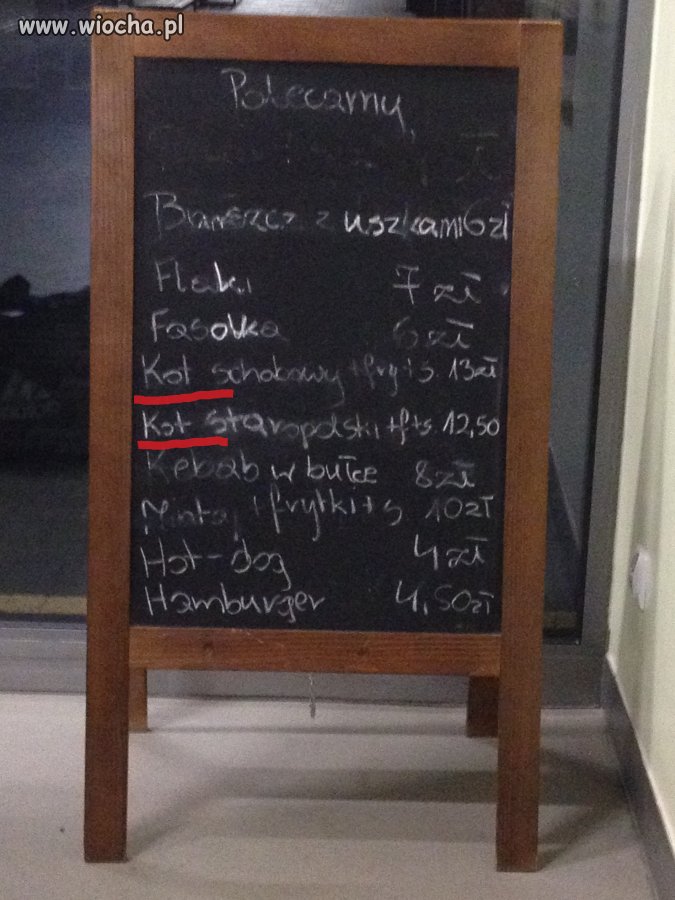 www.wiocha.pl
Polecamy
zł
Barszcz z uszkami 6 zł
Flaki 7 zł
Fasolka 6 zł
Kot schabowy + fryt s. 13 zł
Kot staropolski + f + s. 12,50
Kebab w bułce 8 zł
Mintaj + frytki + s 10 zł
Hot-dog 4 zł
Hamburger 4,50 zł